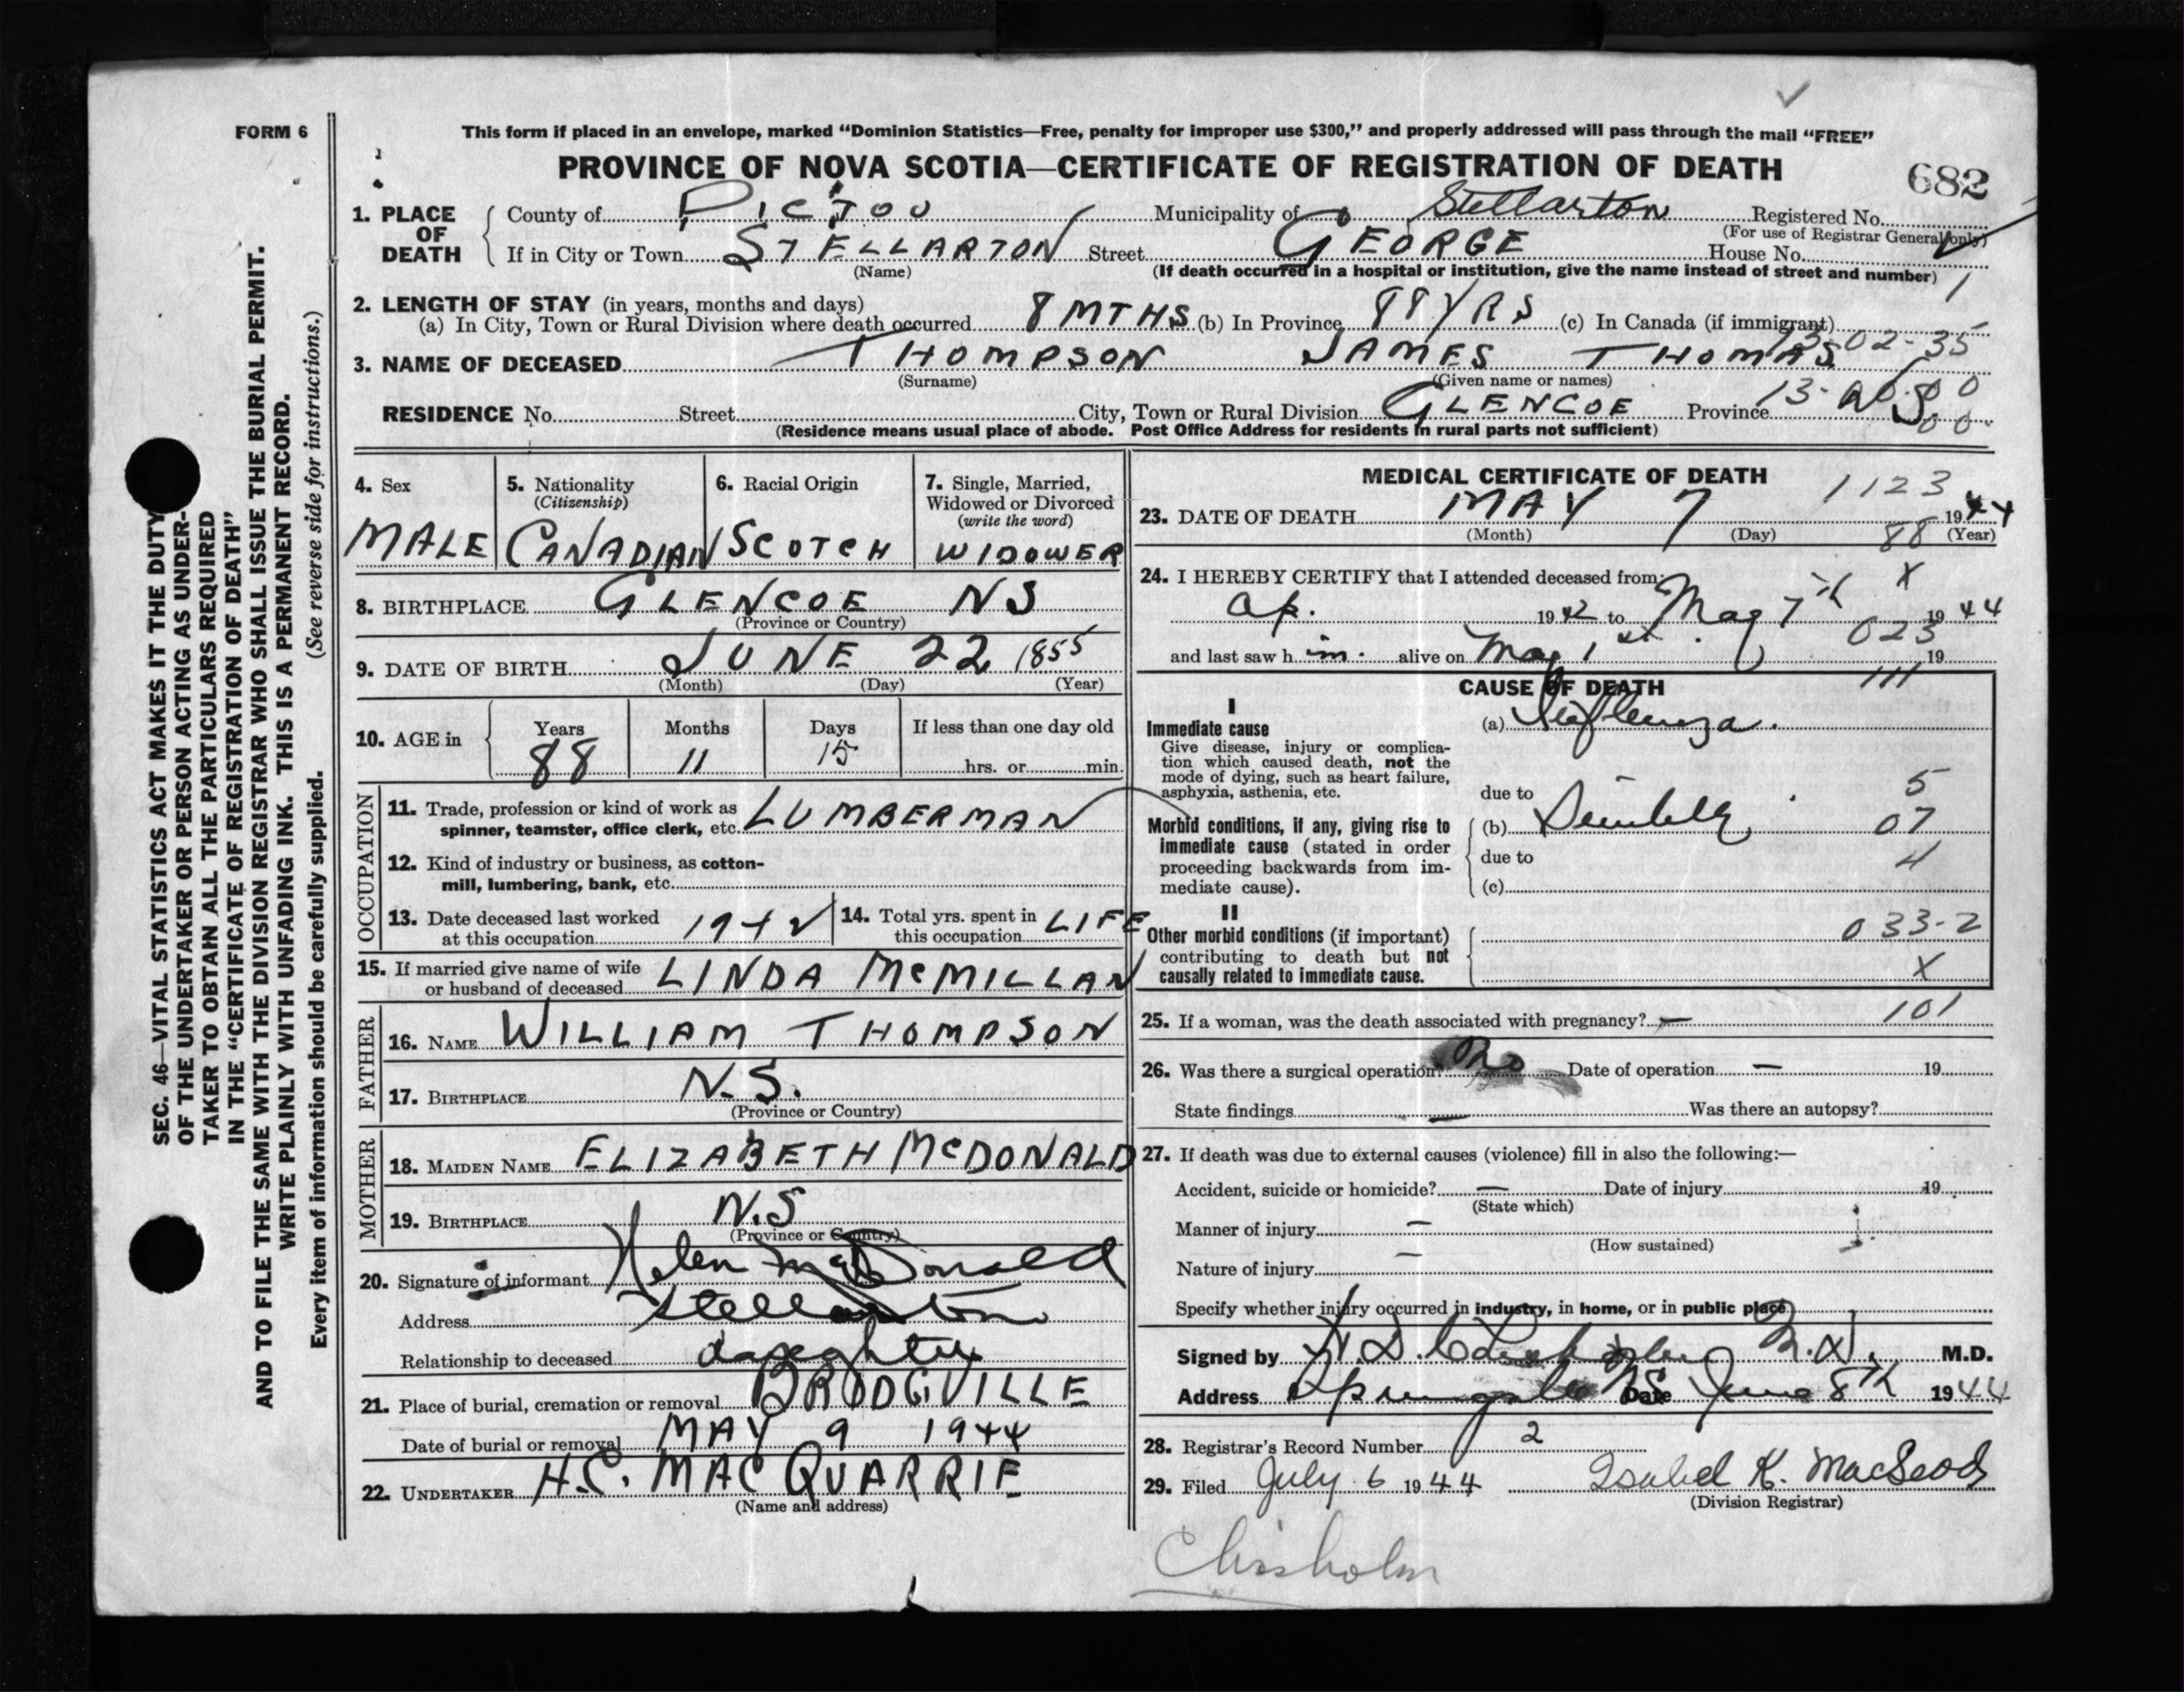 FORM 6
This form if placed in an envelope, marked "Dominion Statistics—Free, penalty for improper use $300," and properly addressed will pass through the mail "FREE"
PROVINCE OF NOVA SCOTIA—CERTIFICATE OF REGISTRATION OF DEATH
682
1. PLACE OF DEATH
County of PICTOU Municipality of Stellarton Registered No.
(For use of Registrar General only)
If in City or Town STELLARTON Street GEORGE House No.
(Name) (If death occurred in a hospital or institution, give the name instead of street and number) 1
2. LENGTH OF STAY (in years, months and days)
(a) In City, Town or Rural Division where death occurred 8 MTHS (b) In Province 88 YRS (c) In Canada (if immigrant)
3. NAME OF DECEASED THOMPSON JAMES THOMAS 02-35
(Surname) (Given name or names)
RESIDENCE No. Street City, Town or Rural Division GLENCOE Province
(Residence means usual place of abode. Post Office Address for residents in rural parts not sufficient)
4. Sex
MALE
5. Nationality
(Citizenship)
CANADIAN
6. Racial Origin
SCOTCH
7. Single, Married, Widowed or Divorced
(write the word)
WIDOWER
8. BIRTHPLACE GLENCOE NS
(Province or Country)
9. DATE OF BIRTH JUNE 22 1855
(Month) (Day) (Year)
10. AGE in Years Months Days If less than one day old
88 11 15 hrs. or min.
OCCUPATION
11. Trade, profession or kind of work as
spinner, teamster, office clerk, etc. LUMBERMAN
12. Kind of industry or business, as cotton-
mill, lumbering, bank, etc.
13. Date deceased last worked
at this occupation 1942
14. Total yrs. spent in
this occupation LIFE
15. If married give name of wife
or husband of deceased LINDA McMILLAN
FATHER
16. NAME WILLIAM THOMPSON
17. BIRTHPLACE N.S.
(Province or Country)
MOTHER
18. MAIDEN NAME ELIZABETH McDONALD
19. BIRTHPLACE N.S
(Province or Country)
20. Signature of informant Helen McDonald
Address Stellarton
Relationship to deceased daughter
21. Place of burial, cremation or removal BRIDGVILLE
Date of burial or removal MAY 9 1944
22. UNDERTAKER H.C. MACQUARRIE
(Name and address)
MEDICAL CERTIFICATE OF DEATH
1123
23. DATE OF DEATH MAY 7 1944
(Month) (Day) (Year)
88
24. I HEREBY CERTIFY that I attended deceased from: X
Ap. 1942 to May 7th 1944
023
and last saw h im. alive on May 1st 19
111
CAUSE OF DEATH
I
Immediate cause
Give disease, injury or complica-
tion which caused death, not the
mode of dying, such as heart failure,
asphyxia, asthenia, etc.
(a) Influenza.
due to 5
Morbid conditions, if any, giving rise to
immediate cause (stated in order
proceeding backwards from im-
mediate cause).
(b) 07
due to 4
(c)
II
Other morbid conditions (if important)
contributing to death but not
causally related to immediate cause.
033-2
X
25. If a woman, was the death associated with pregnancy? — 101
26. Was there a surgical operation? no Date of operation — 19
State findings — Was there an autopsy?
27. If death was due to external causes (violence) fill in also the following:—
Accident, suicide or homicide? — Date of injury 19
(State which)
Manner of injury —
(How sustained)
Nature of injury —
Specify whether injury occurred in industry, in home, or in public place
Signed by M.D. M.D.
Address Date June 8th 1944
28. Registrar's Record Number 2
29. Filed July 6 1944 Isabel K. MacLeod
(Division Registrar)
Chisholm
SEC. 46—VITAL STATISTICS ACT MAKES IT THE DUTY
OF THE UNDERTAKER OR PERSON ACTING AS UNDER-
TAKER TO OBTAIN ALL THE PARTICULARS REQUIRED
IN THE "CERTIFICATE OF REGISTRATION OF DEATH"
AND TO FILE THE SAME WITH THE DIVISION REGISTRAR WHO SHALL ISSUE THE BURIAL PERMIT.
WRITE PLAINLY WITH UNFADING INK. THIS IS A PERMANENT RECORD.
Every item of information should be carefully supplied. (See reverse side for instructions.)